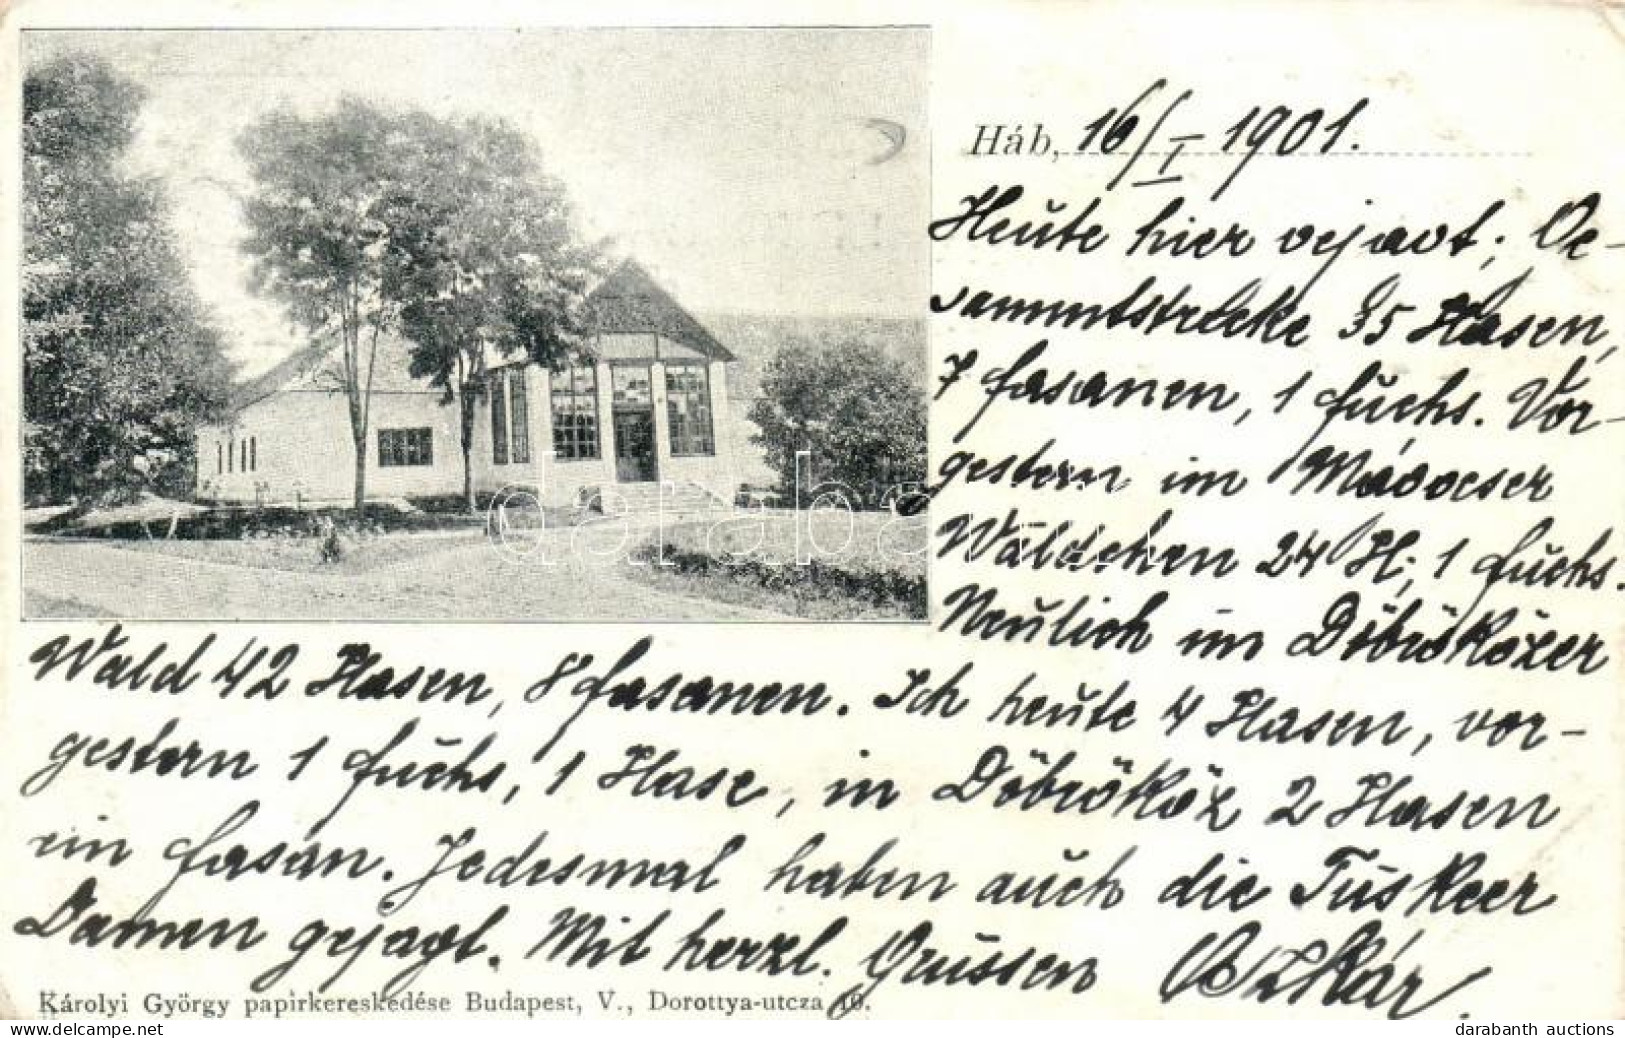 Háb, 16/I 1901.
Heute hier gejagt; Ge-
sammtstrecke 35 Hasen,
7 Fasanen, 1 Fuchs. Vor-
gestern im Mágocser
Wäldchen 24 H, 1 Fuchs.
Neulich im Döbröközer
Wald 42 Hasen, 8 Fasanen. Ich heute 4 Hasen, vor-
gestern 1 Fuchs, 1 Hase, in Döbrököz 2 Hasen
ein Fasan. Jedesmal haben auch die Tüskeer
Damen gejagt. Mit herzl. Grüssen Oszkár.
Károlyi György papirkereskedése Budapest, V., Dorottya-utcza 10.
darabanth auctions